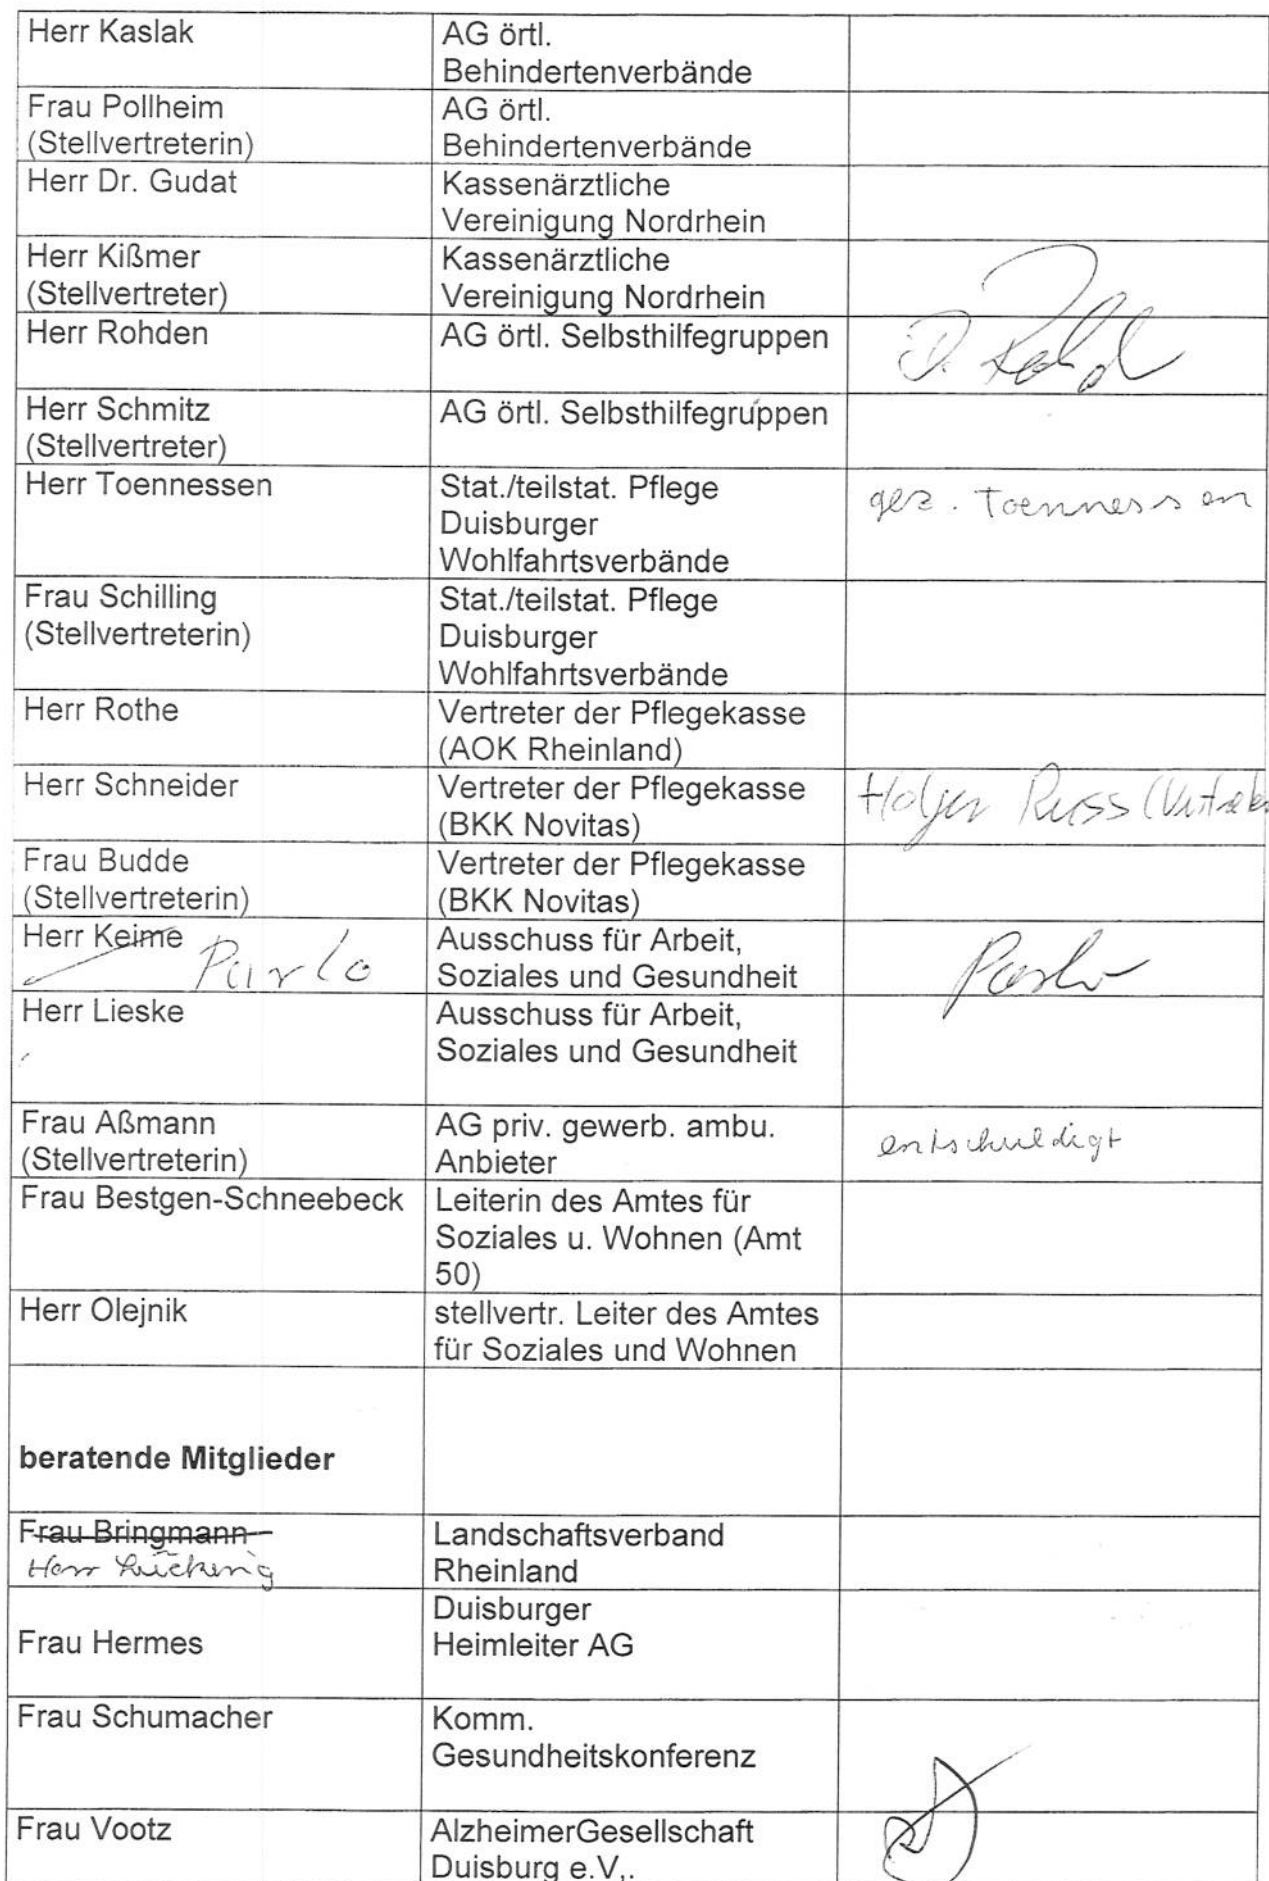 Herr Kaslak
AG örtl.
Behindertenverbände
Frau Pollheim
(Stellvertreterin)
AG örtl.
Behindertenverbände
Herr Dr. Gudat
Kassenärztliche
Vereinigung Nordrhein
Herr Kißmer
(Stellvertreter)
Kassenärztliche
Vereinigung Nordrhein
Herr Rohden
AG örtl. Selbsthilfegruppen
Herr Schmitz
(Stellvertreter)
AG örtl. Selbsthilfegruppen
Herr Toennessen
Stat./teilstat. Pflege
Duisburger
Wohlfahrtsverbände
gez. Toennessen
Frau Schilling
(Stellvertreterin)
Stat./teilstat. Pflege
Duisburger
Wohlfahrtsverbände
Herr Rothe
Vertreter der Pflegekasse
(AOK Rheinland)
Herr Schneider
Vertreter der Pflegekasse
(BKK Novitas)
Holger Russ
Frau Budde
(Stellvertreterin)
Vertreter der Pflegekasse
(BKK Novitas)
Herr Keime
Parlo
Ausschuss für Arbeit,
Soziales und Gesundheit
Parlo
Herr Lieske
Ausschuss für Arbeit,
Soziales und Gesundheit
Frau Aßmann
(Stellvertreterin)
AG priv. gewerb. ambu.
Anbieter
entschuldigt
Frau Bestgen-Schneebeck
Leiterin des Amtes für
Soziales u. Wohnen (Amt
50)
Herr Olejnik
stellvertr. Leiter des Amtes
für Soziales und Wohnen
beratende Mitglieder
Frau Bringmann
Herr Lücking
Landschaftsverband
Rheinland
Frau Hermes
Duisburger
Heimleiter AG
Frau Schumacher
Komm.
Gesundheitskonferenz
Frau Vootz
AlzheimerGesellschaft
Duisburg e.V,.